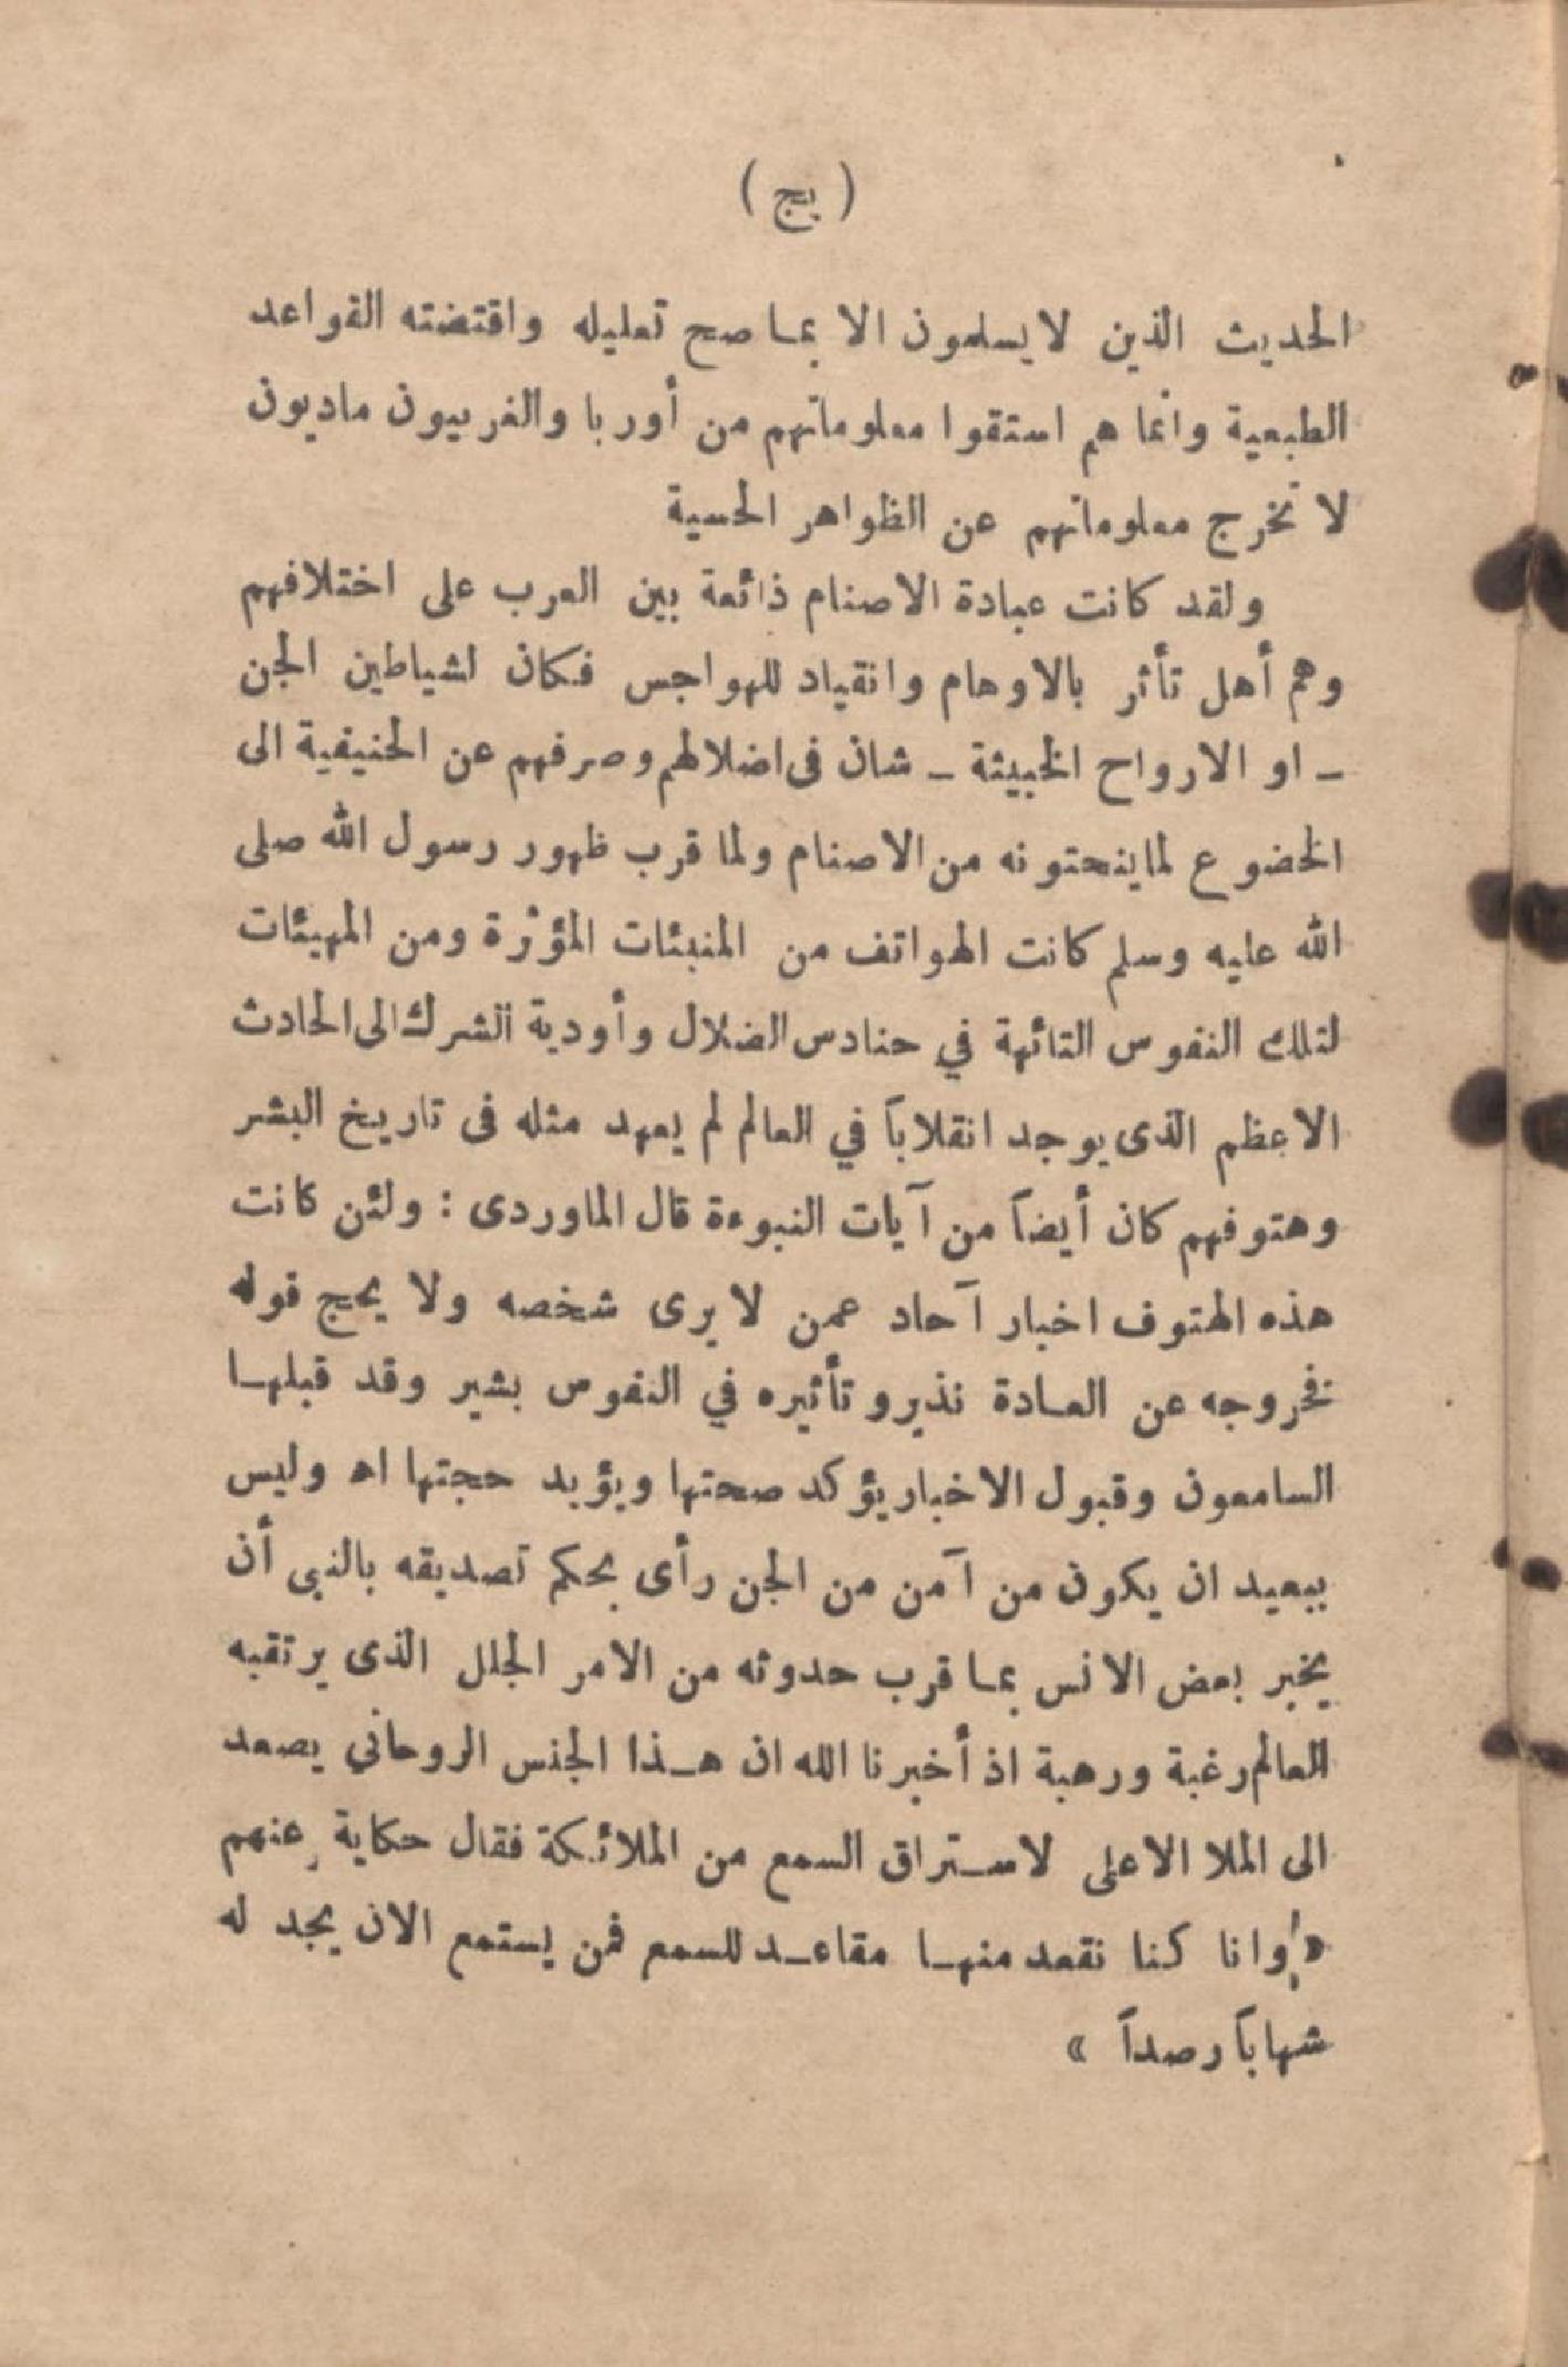 ( يج )
الحديث الذين لا يسلمون الا بما صح تعليله واقتضته القواعد
الطبعية وانما هم استقوا معلوماتهم من أوربا والغربيون ماديون
لا تخرج معلوماتهم عن الظواهر الحسية
ولقد كانت عبادة الاصنام ذائعة بين العرب على اختلافهم
وهم أهل تأثر بالاوهام وانقياد للهواجس فكان لشياطين الجن
ـ او الارواح الخبيثة ـ شان فى اضلالهم وصرفهم عن الحنيفية الى
الخضوع لما ينحتونه من الاصنام ولما قرب ظهور رسول الله صلى
الله عليه وسلم كانت الهواتف من المنبئات المؤثرة ومن المهيئات
لتلك النفوس التائهة في حنادس الضلال وأودية الشرك الى الحادث
الاعظم الذى يوجد انقلاباً في العالم لم يعهد مثله فى تاريخ البشر
وهتوفهم كان أيضاً من آيات النبوءة قال الماوردى : ولئن كانت
هذه الهتوف اخبار آحاد عمن لا يرى شخصه ولا يحج قوله
فخروجه عن العادة نذير وتأثيره في النفوس بشير وقد قبلها
السامعون وقبول الاخبار يؤكد صحتها ويؤيد حجتها اه وليس
ببعيد ان يكون من آمن من الجن رأى بحكم تصديقه بالنبى أن
يخبر بعض الانس بما قرب حدوثه من الامر الجلل الذى يرتقبه
العالم رغبة ورهبة اذ أخبرنا الله ان هذا الجنس الروحاني يصعد
الى الملا الاعلى لاستراق السمع من الملائكة فقال حكاية عنهم
« وانا كنا نقعد منها مقاعد للسمع فمن يستمع الان يجد له
شهاباً رصداً »